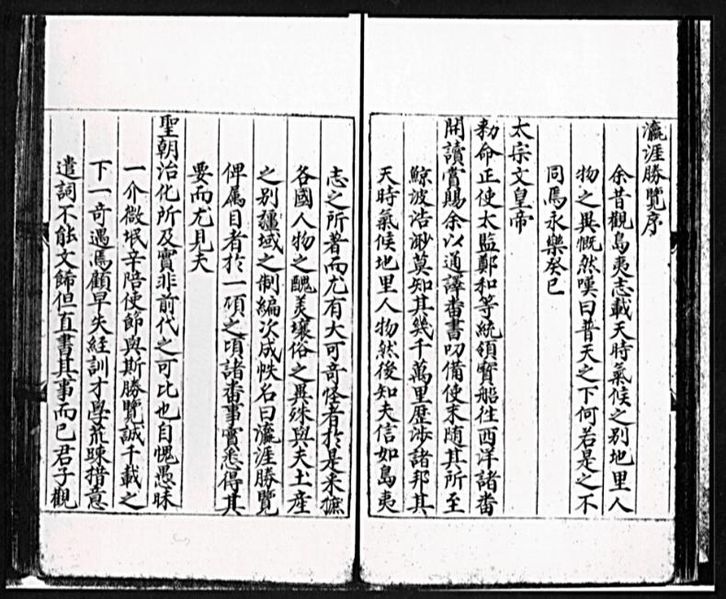 瀛涯勝覽序
余昔觀島夷志載天時氣候之別地里人
物之異慨然嘆曰普天之下何若是之不
同焉永樂癸巳
太宗文皇帝
勑命正使太監鄭和等統領寶船往西洋諸番
開讀賞賜余以通譯番書叨備使末隨其所至
鯨波浩渺莫知其幾千萬里歷涉諸邦其
天時氣候地里人物然後知夫信如島夷
志之所著而尤有大可奇怪者於是采摭
各國人物之醜美壤俗之異殊與夫土產
之別疆域之制編次成帙名曰瀛涯勝覽
俾属目者於一頃之頃諸番事實悉得其
要而尤見夫
聖朝治化所及實非前代之可比也自愧愚昧
一介微氓辛陪使節與斯勝覽誠千載之
下一奇遇焉顧早失經訓才學荒踈措意
遣詞不能文飾但直書其事而已君子觀